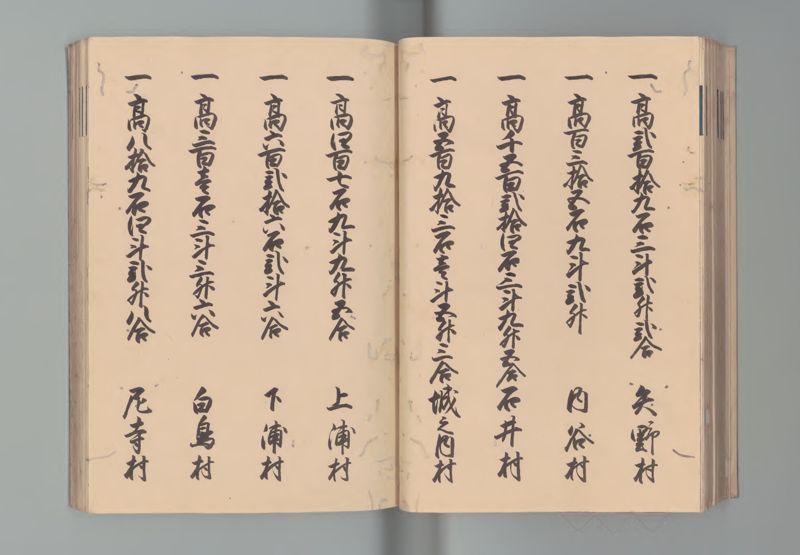 一高弐百拾九石三斗弐升弐合 矢野村
一高百三拾五石九斗弐升 内谷村
一高千五百弐拾四石三斗九升五合 石井村
一高五百九拾三石壱斗五升三合 城之内村
一高四百十石九斗九升五合 上浦村
一高六百弐拾六石弐斗六合 下浦村
一高三百壱石三斗三升六合 白鳥村
一高八拾九石四斗弐升八合 尼寺村